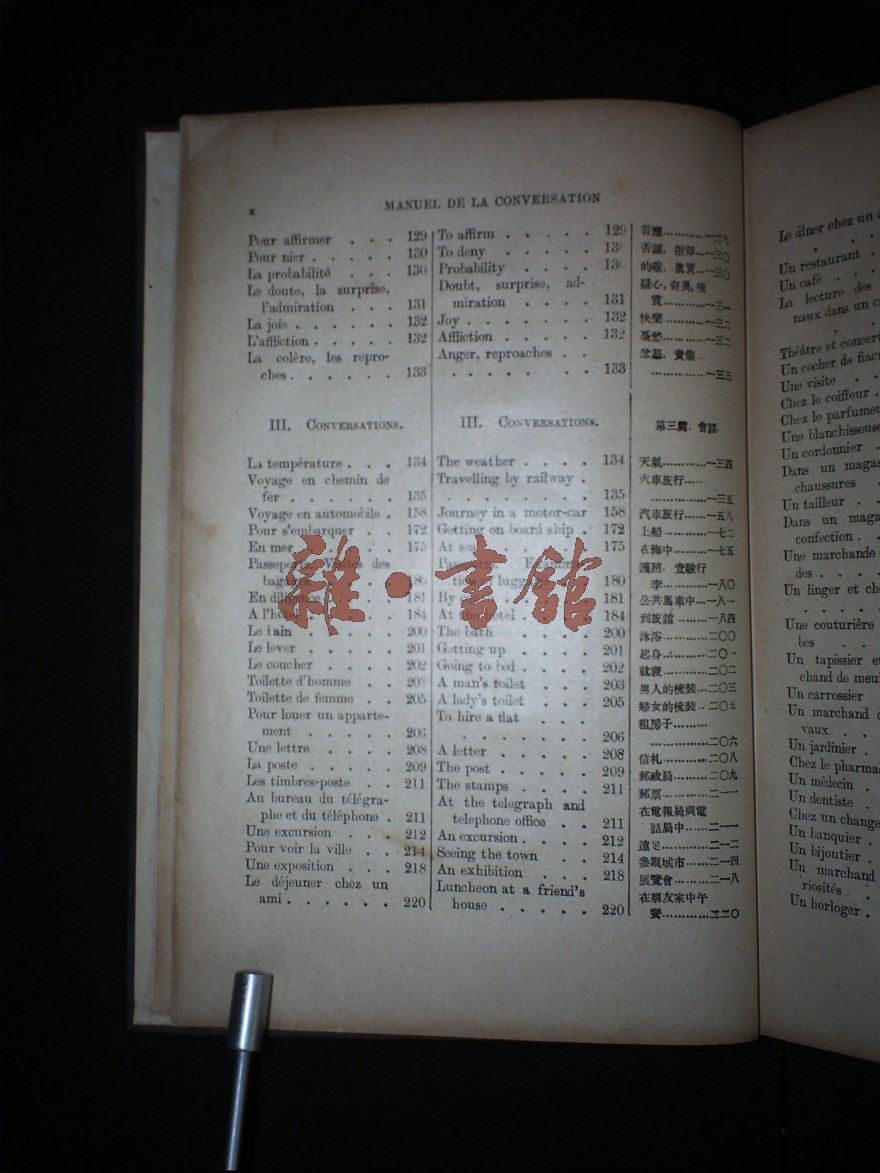 x
MANUEL DE LA CONVERSATION
Pour affirmer . . . 129
Pour nier . . . . . 130
La probabilité . . . 130
Le doute, la surprise,
l'admiration . . . 131
La joie . . . . . . 132
L'affliction . . . . . 132
La colère, les repro-
ches . . . . . . 133
III. CONVERSATIONS.
La température . . . 134
Voyage en chemin de
fer . . . . . . 135
Voyage en automobile . 158
Pour s'embarquer . . 172
En mer . . . 175
Passeports. Visites des
bagages 180
En diligence 181
A l'hôtel 184
Le bain . . . . . 200
Le lever . . . . . 201
Le coucher . . . . 202
Toilette d'homme . . 203
Toilette de femme . . 205
Pour louer un apparte-
ment . . . . . 206
Une lettre . . . . 208
La poste . . . . . 209
Les timbres-poste . . 211
Au bureau du télégra-
phe et du téléphone . 211
Une excursion . . . 212
Pour voir la ville . . 214
Une exposition . . . 218
Le déjeuner chez un
ami . . . . . . 220
To affirm . . . . . 129
To deny . . . . . 130
Probability . . . . 130
Doubt, surprise, ad-
miration . . . . 131
Joy . . . . . . . 132
Affliction . . . . . 132
Anger, reproaches . .
. . . . . . . 133
III. CONVERSATIONS.
The weather . . . . 134
Travelling by railway .
. . . . . . . 135
Journey in a motor-car 158
Getting on board ship . 172
At sea 175
Passports. Examina-
tion of luggage 180
By 181
At the hotel . 184
The bath . . . . 200
Getting up . . . . 201
Going to bed . . . . 202
A man's toilet . . . 203
A lady's toilet . . . 205
To hire a flat . . .
. . . . . . . 206
A letter . . . . . 208
The post . . . . . 209
The stamps . . . . 211
At the telegraph and
telephone office . . 211
An excursion . . . . 212
Seeing the town . . 214
An exhibition . . . 218
Luncheon at a friend's
house . . . . . 220
答應…………一二九
否認, 一三〇
的確, 眞實…一三〇
疑心, 奇異,
賞…………一三一
快樂…………一三二
憂愁…………一三二
忿怒, 責備 ..
…………一三三
第三篇. 會話.
天氣…………一三四
火車旅行……
…………一三五
汽車旅行……一五八
上船…………一七二
在海中………一七五
護照. 查驗行
李…………一八〇
公共馬車中…一八一
到旅館 ……一八四
沐浴…………二〇〇
起身…………二〇一
就寢…………二〇二
男人的梳裝…二〇三
婦女的梳裝 ..二〇五
租房子………
…………二〇六
信札…………二〇八
郵政局………二〇九
郵票…………二一一
在電報局與電
話局中……二一一
遠足…………二一二
參觀城市……二一四
展覽會………二一八
在朋友家中午
餐…………二二〇
雜·書館
Le dîner chez un a
Un restaurant .
Un café . . .
La lecture des
naux dans un c
Théâtre et concert
Un cocher de fiacr
Une visite . .
Chez le coiffeur .
Chez le parfumeu
Une blanchisseuse
Un cordonnier .
Dans un magas
chaussures .
Un tailleur . .
Dans un maga
confection . .
Une marchande
des . . . .
Un linger et che
. . . . .
Une couturière
bes . .
Un tapissier et
chand de meu
Un carrossier
Un marchand d
vaux . . .
Un jardinier .
Chez le pharmac
Un médecin .
Un dentiste .
Chez un change
Un banquier .
Un bijoutier .
Un marchand
riosités .
Un horloger .